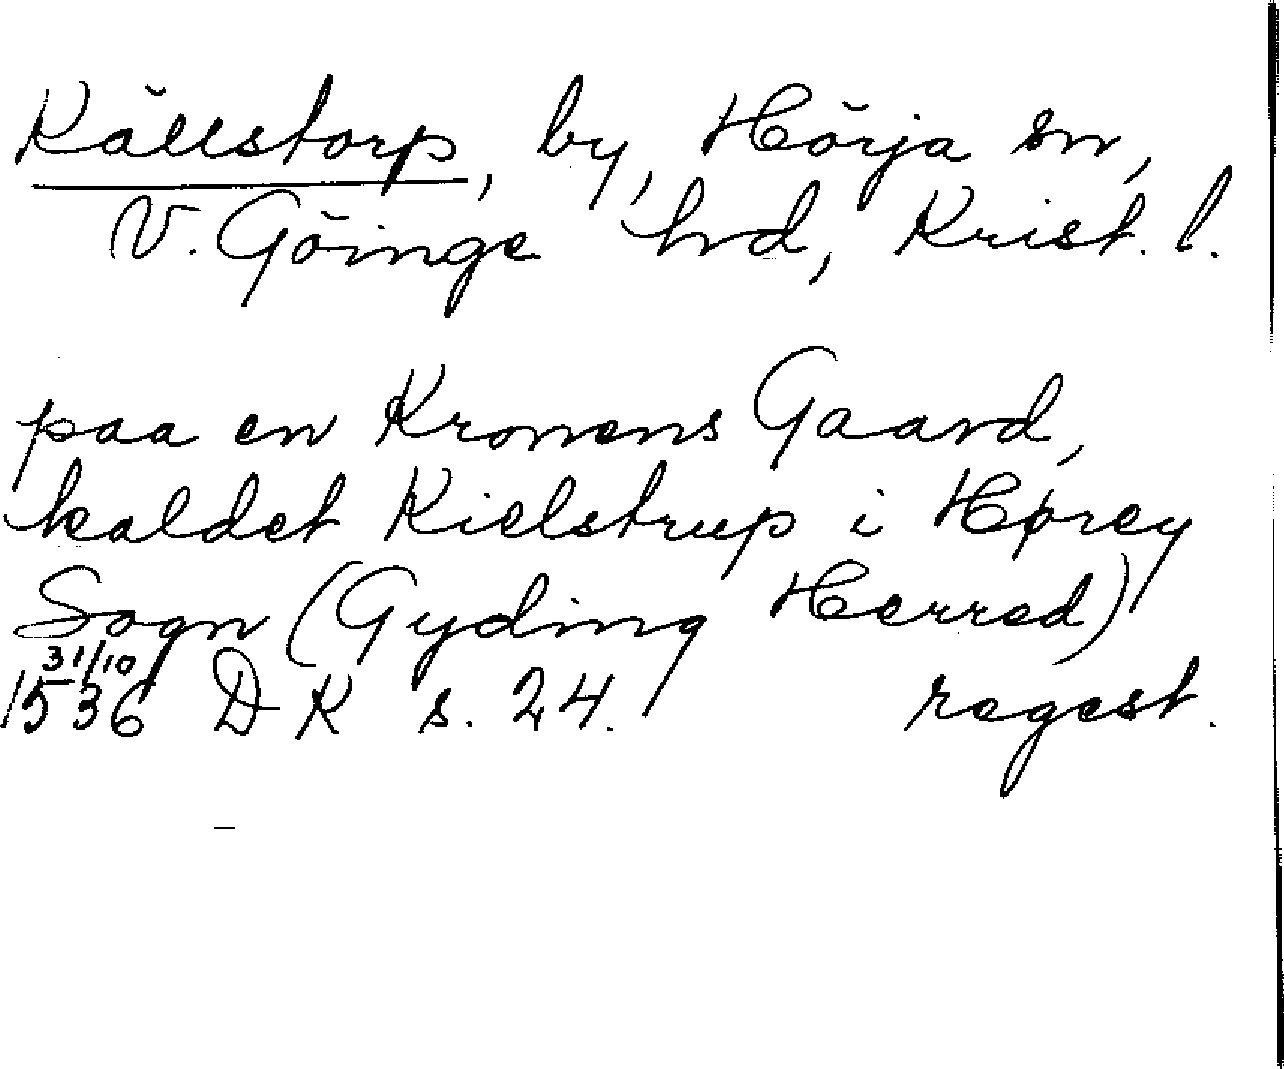 Källstorp, by, Hörja sn,
V. Göinge hrd, Krist. l.
paa en Kronens Gaard,
kaldet Kielstrup i Hørey
Sogn (Gyding Herred)
31/10
1536 DK s. 24. regest.